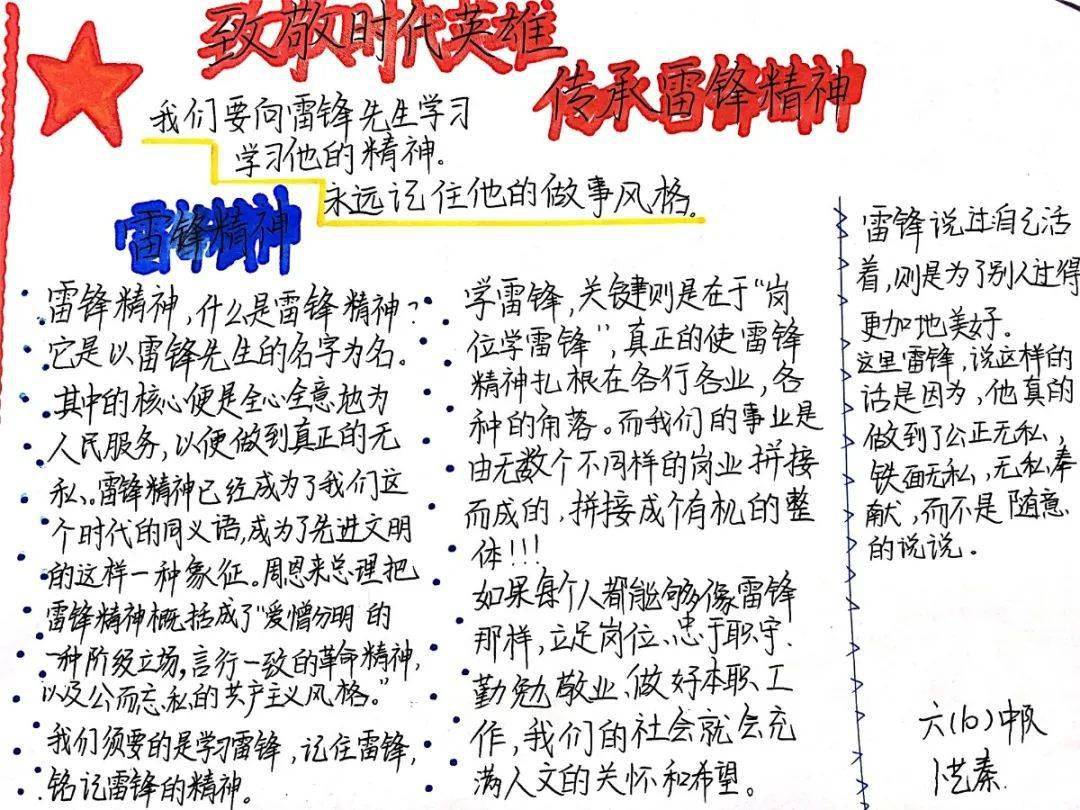 致敬时代英雄
传承雷锋精神
我们要向雷锋先生学习
学习他的精神.
永远记住他的做事风格。
雷锋精神
雷锋精神,什么是雷锋精神?
它是以雷锋先生的名字为名。
其中的核心便是全心全意地为
人民服务,以便做到真正的无
私、。雷锋精神已经成为了我们这
个时代的同义语,成为了先进文明
的这样一种象征。周恩来总理把
雷锋精神概括成了“爱憎分明的
一种阶级立场,言行一致的革命精神,
以及公而忘私的共产主义风格。”
我们须要的是学习雷锋,记住雷锋,
铭记雷锋的精神。
学雷锋,关键则是在于“岗
位学雷锋”,真正的使雷锋
精神扎根在各行各业,各
种的角落。而我们的事业是
由无数个不同样的岗业拼接
而成的,拼接成个有机的整
体!!!
如果每个人都能够多像雷锋
那样,立足岗位、忠于职守.
勤勉敬业、做好本职工
作,我们的社会就会充
满人文的关怀和希望。
雷锋说过自己活
着,则是为了别人过得
更加地美好。
这里雷锋,说这样的
话是因为,他真的
做到了公正无私、
铁面无私、无私奉
献,而不是随意
的说说。
六(10)中队